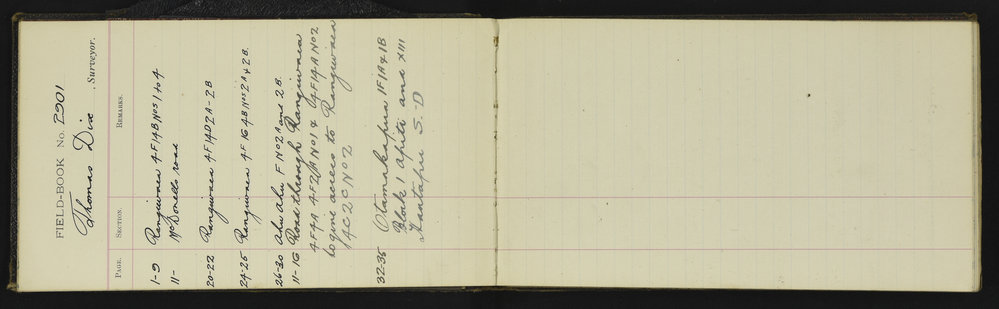 FIELD-BOOK No. P901
Thomas Dix, Surveyor.
PAGE. SECTION. REMARKS.
1-9 Rangiwaea 4F14B Nos 1 to 4
11- McDonells road
20-22 Rangiwaea 4F14D2A-2B
24-25 Rangiwaea 4F164B Nos 2A & 2B.
26-30 Ahu Ahu F No 2A and 2B.
11-16 Road through Rangiwaea
4F4A 4F2 No 1 & 4F14A No 2
to give access to Rangiwaea
4C2C No 2
32-35 Otamakapua 1F1A & 1B
Block 1 Apiti and XIII
S.-D